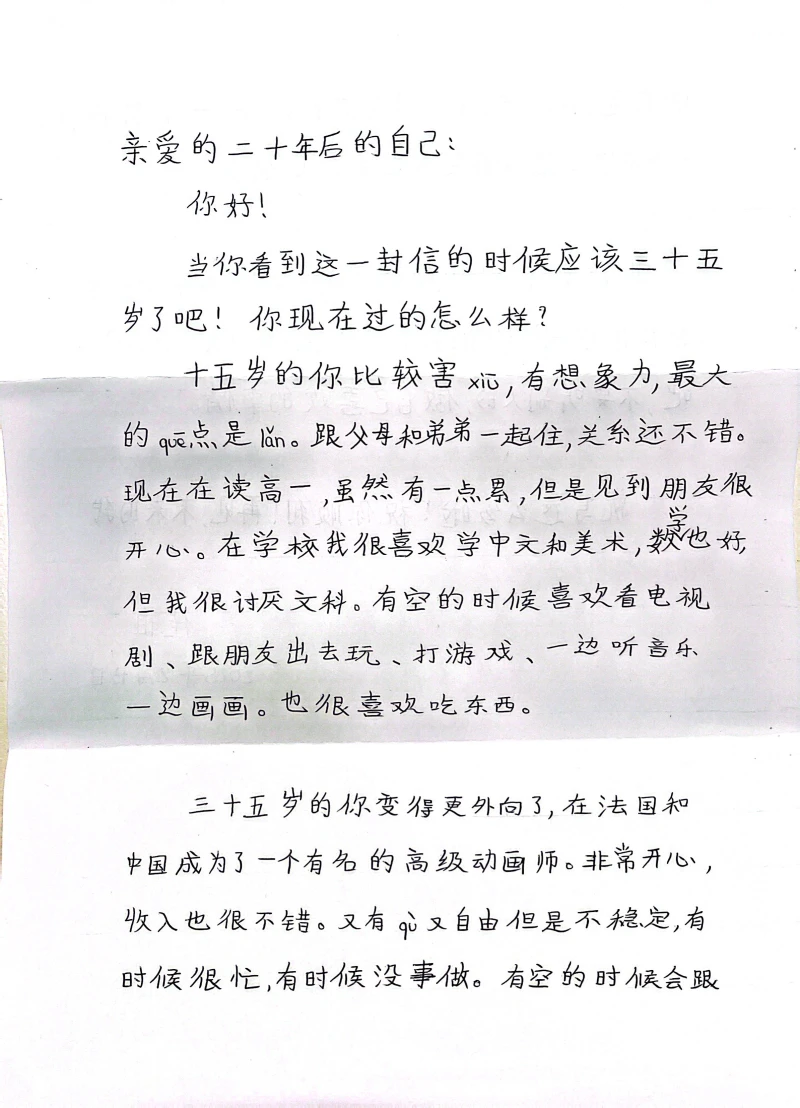 亲爱的二十年后的自己：
你好！
当你看到这一封信的时候应该三十五
岁了吧！你现在过的怎么样？
十五岁的你比较害xiū，有想象力，最大
的quē点是lǎn。跟父母和弟弟一起住，关系还不错。
现在在读高一，虽然有一点累，但是见到朋友很
开心。在学校我很喜欢学中文和美术，数学也好，
但我很讨厌文科。有空的时候喜欢看电视
剧、跟朋友出去玩、打游戏、一边听音乐
一边画画。也很喜欢吃东西。
三十五岁的你变得更外向了，在法国和
中国成为了一个有名的高级动画师。非常开心，
收入也很不错。又有qù又自由但是不稳定，有
时候很忙，有时候没事做。有空的时候会跟